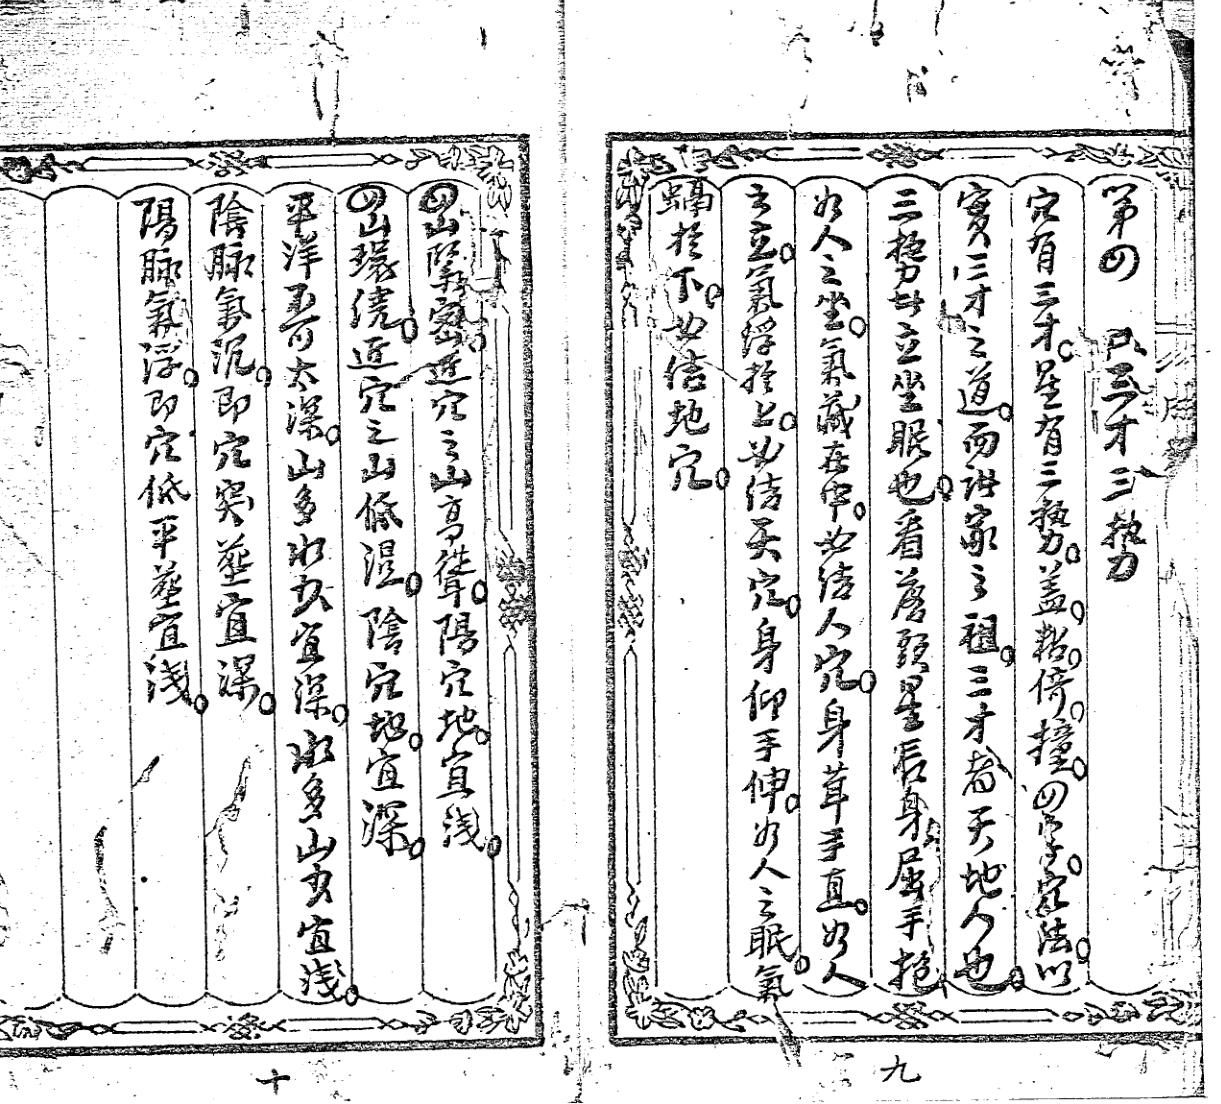 第四 三才三勢
穴有三才。星有三勢。蓋。粘。倚。撞。四字。穴法。以
實三才之道。而諸家之祖。三才者天地人也。
三勢者立坐眠也。看落頭星辰身屈手抱
如人之坐。氣藏在中。必結人穴。身聳手直。如人
之立。氣浮於上。必結天穴。身仰手伸。如人之眠。氣
於下。必結地穴。
九
四山緊密。近穴之山高聳。陽穴地。宜淺。
四山環繞。近穴之山低湿。陰穴地。宜深。
平洋不可太深。山多水少宜深。水多山少宜淺。
陰脉氣沉。即穴突葬宜深。
陽脉氣浮。即穴低平葬宜淺。
十